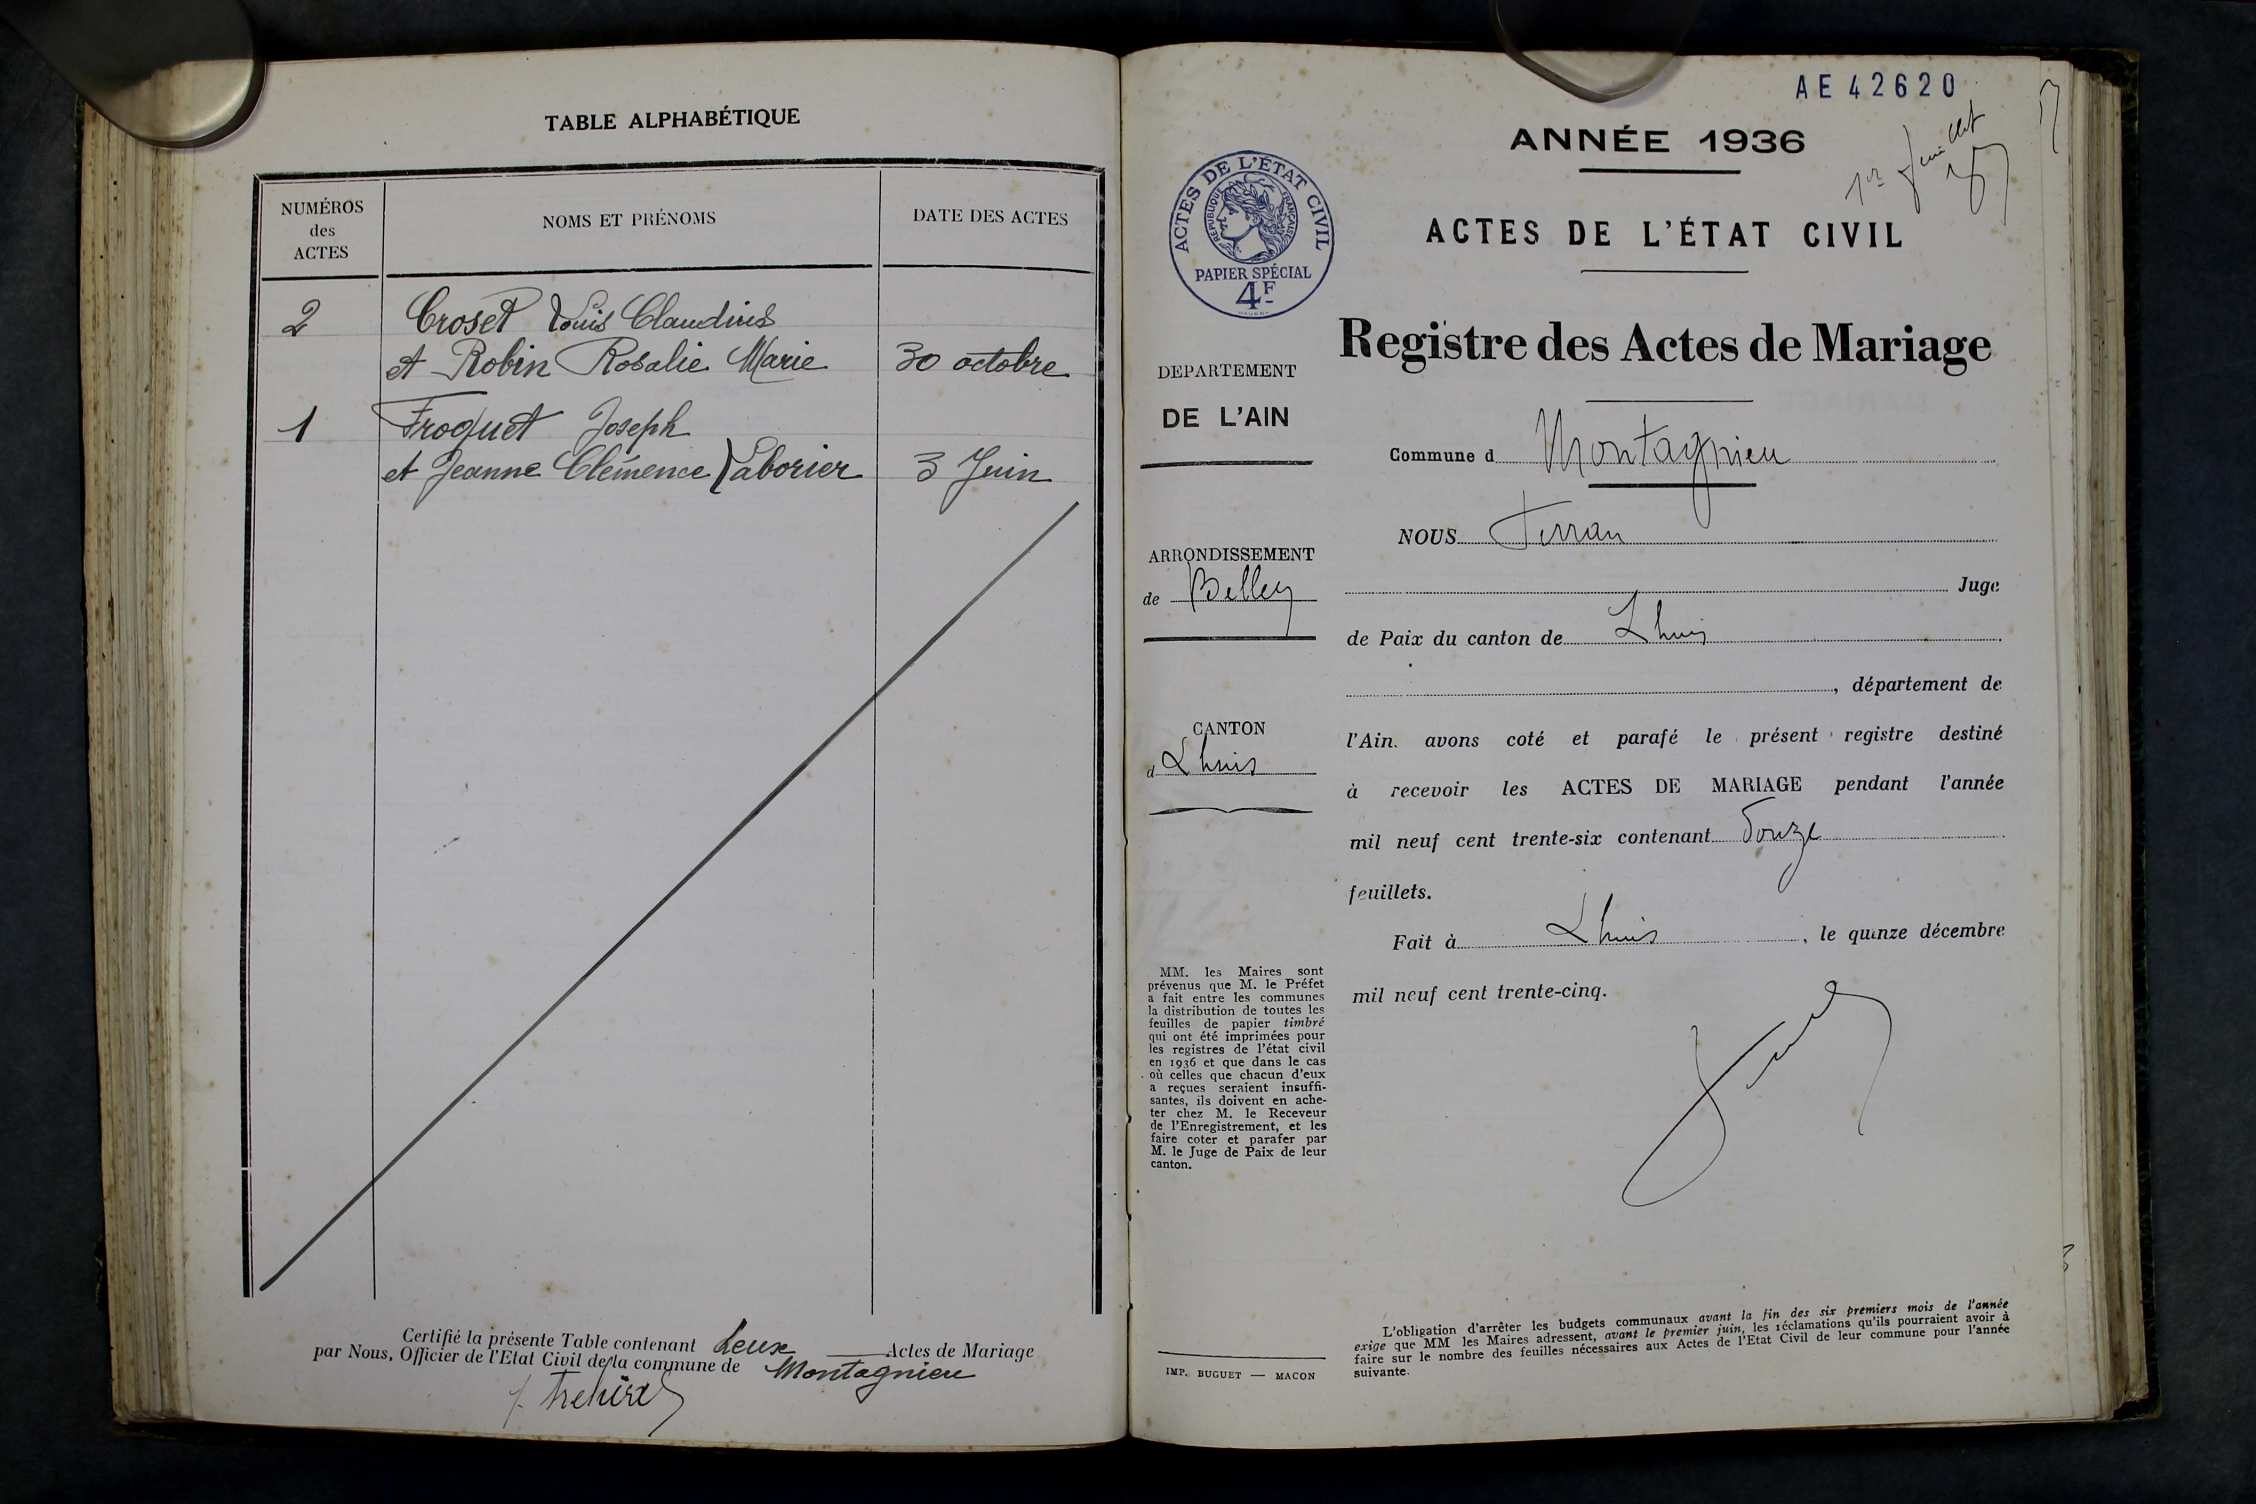 TABLE ALPHABÉTIQUE
NUMÉROS
des
ACTES
NOMS ET PRÉNOMS
DATE DES ACTES
2 Croset Louis Claudius
et Robin Rosalie Marie 30 octobre
1 Froquet Joseph
et Jeanne Clémence Laborier 3 Juin
Certifié la présente Table contenant deux Actes de Mariage
par Nous, Officier de l'Etat Civil de la commune de Montagnieu
AE 42620
1er feuillet
ANNÉE 1936
ACTES DE L'ÉTAT CIVIL
RÉPUBLIQUE FRANÇAISE
PAPIER SPÉCIAL
4F
ACTES DE L'ÉTAT CIVIL
Registre des Actes de Mariage
DEPARTEMENT
DE L'AIN
ARRONDISSEMENT
de Belley
CANTON
d Lhuis
MM. les Maires sont
prévenus que M. le Préfet
a fait entre les communes
la distribution de toutes les
feuilles de papier timbré
qui ont été imprimées pour
les registres de l'état civil
en 1936 et que dans le cas
où celles que chacun d'eux
a reçues seraient insuffi-
santes, ils doivent en ache-
ter chez M. le Receveur
de l'Enregistrement, et les
faire coter et parafer par
M. le Juge de Paix de leur
canton.
IMP. BUGUET — MACON
Commune d Montagnieu
NOUS Ferran
Juge
de Paix du canton de Lhuis
, département de
l'Ain. avons coté et parafé le présent registre destiné
à recevoir les ACTES DE MARIAGE pendant l'année
mil neuf cent trente-six contenant Douze
feuillets.
Fait à Lhuis, le quinze décembre
mil neuf cent trente-cinq.
L'obligation d'arrêter les budgets communaux avant la fin des six premiers mois de l'année
exige que MM les Maires adressent, avant le premier juin, les réclamations qu'ils pourraient avoir à
faire sur le nombre des feuilles nécessaires aux Actes de l'Etat Civil de leur commune pour l'année
suivante.